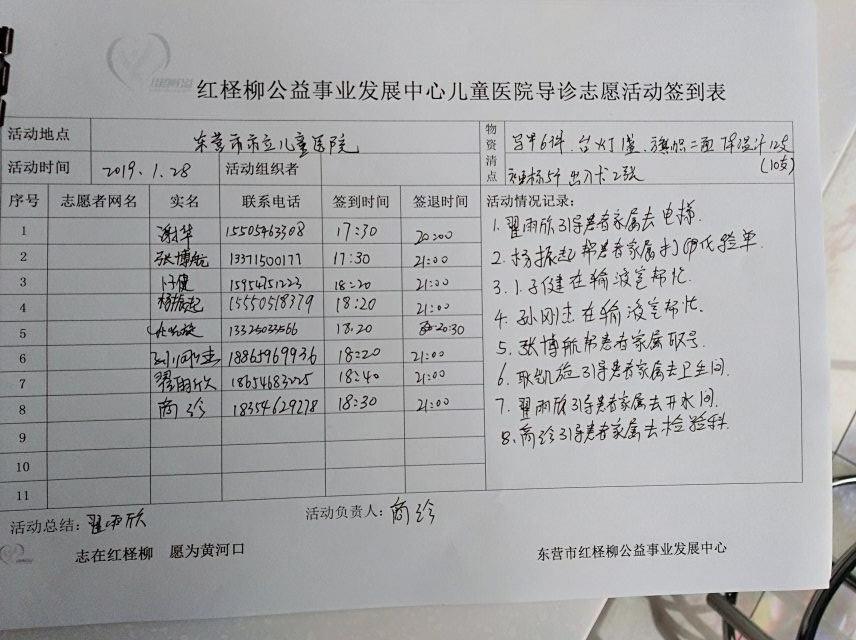 红柽柳公益事业发展中心儿童医院导诊志愿活动签到表
活动地点 东营市市立儿童医院
物资清点 马甲6件、台灯1盏、旗帜二面 体温计12支(10支)
袖标5个 出入卡2张
活动时间 2019.1.28 活动组织者
序号 志愿者网名 实名 联系电话 签到时间 签退时间 活动情况记录:
1 谢华 15505463308 17:30 20:00
2 张博航 13371500177 17:30 21:00
3 卜子健 15954751223 18:20 21:00
4 杨振起 15550518379 18:20 21:00
5 13325033566 18:20 20:30
6 孙刚杰 18865969936 18:20 21:00
7 翟雨欣 18654683225 18:40 21:00
8 商珍 18354629278 18:30 21:00
9
10
11
1. 翟雨欣引导患者家属去电梯.
2. 杨振起帮患者家属打印化验单.
3. 卜子健在输液室帮忙.
4. 孙刚杰在输液室帮忙.
5. 张博航帮患者家属取号.
6. 耿凯旋引导患者家属去卫生间.
7. 翟雨欣引导患者家属去开水间.
8. 商珍引导患者家属去检验科.
活动总结: 翟雨欣 活动负责人: 商珍
志在红柽柳 愿为黄河口 东营市红柽柳公益事业发展中心